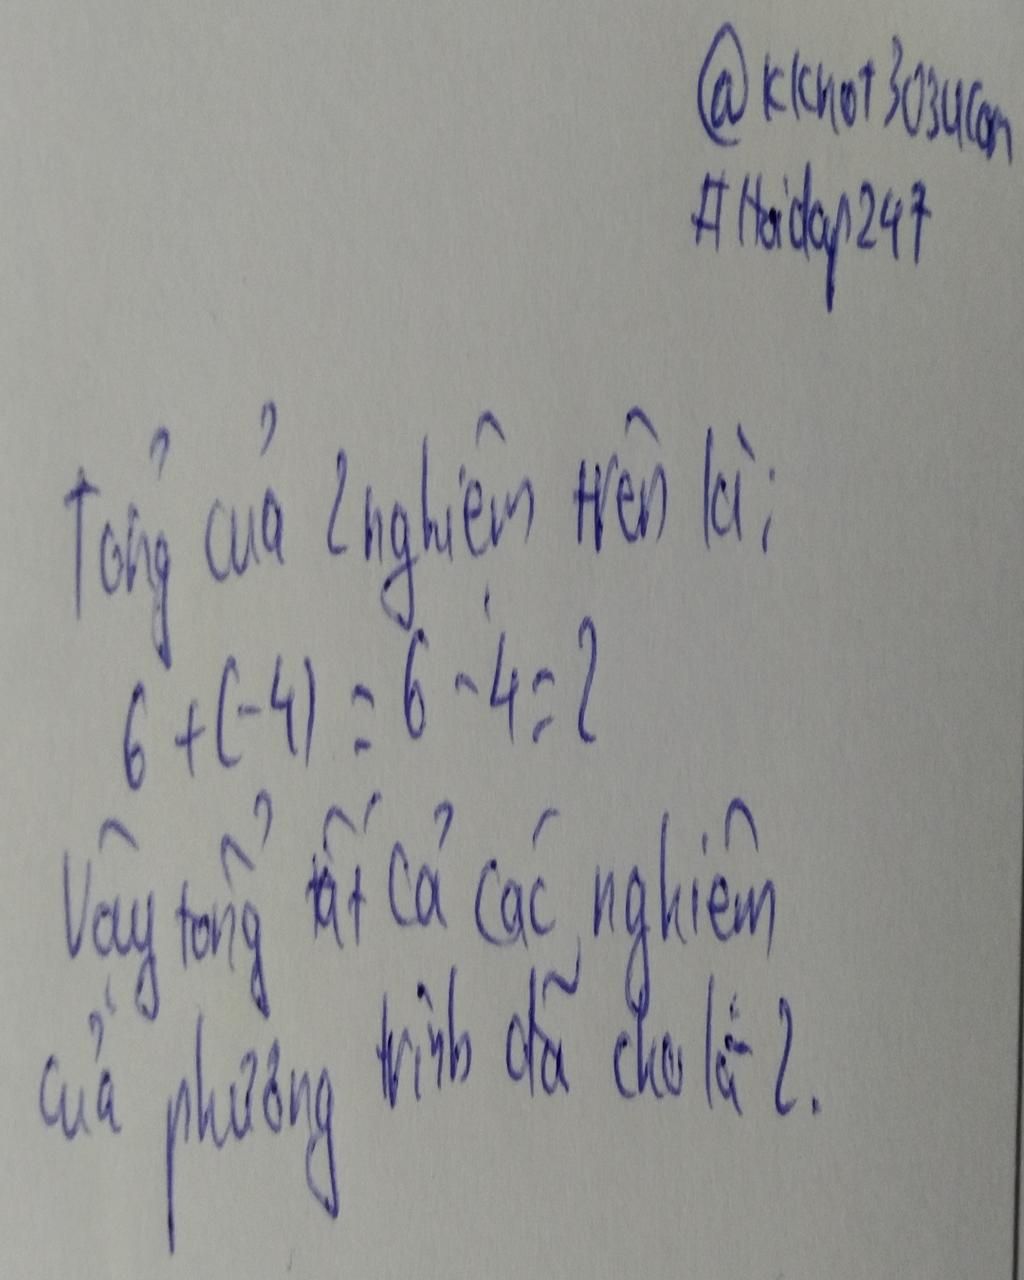 @kkhot3034com
#Hoidap247
Tổng của 2 nghiệm trên là:
6 + (-4) = 6 - 4 = 2
Vậy tổng tất cả các nghiệm
của phương trình đã cho là 2.